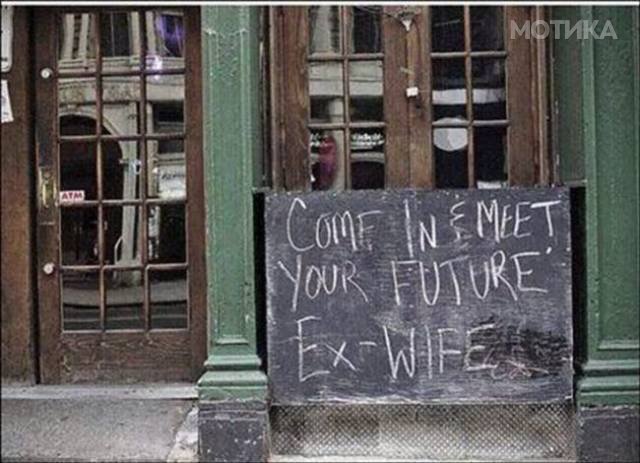 МОТИКА
ATM
COME IN & MEET
YOUR FUTURE
EX-WIFE